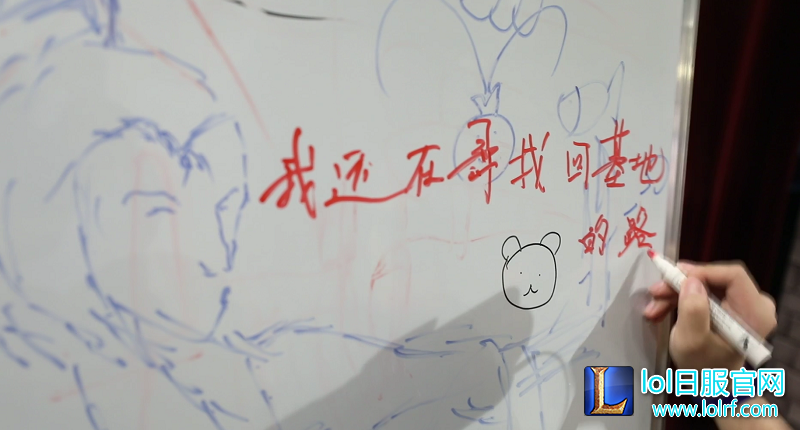 我还在寻找回基地
的路
lol日服官网
www.lolrf.com